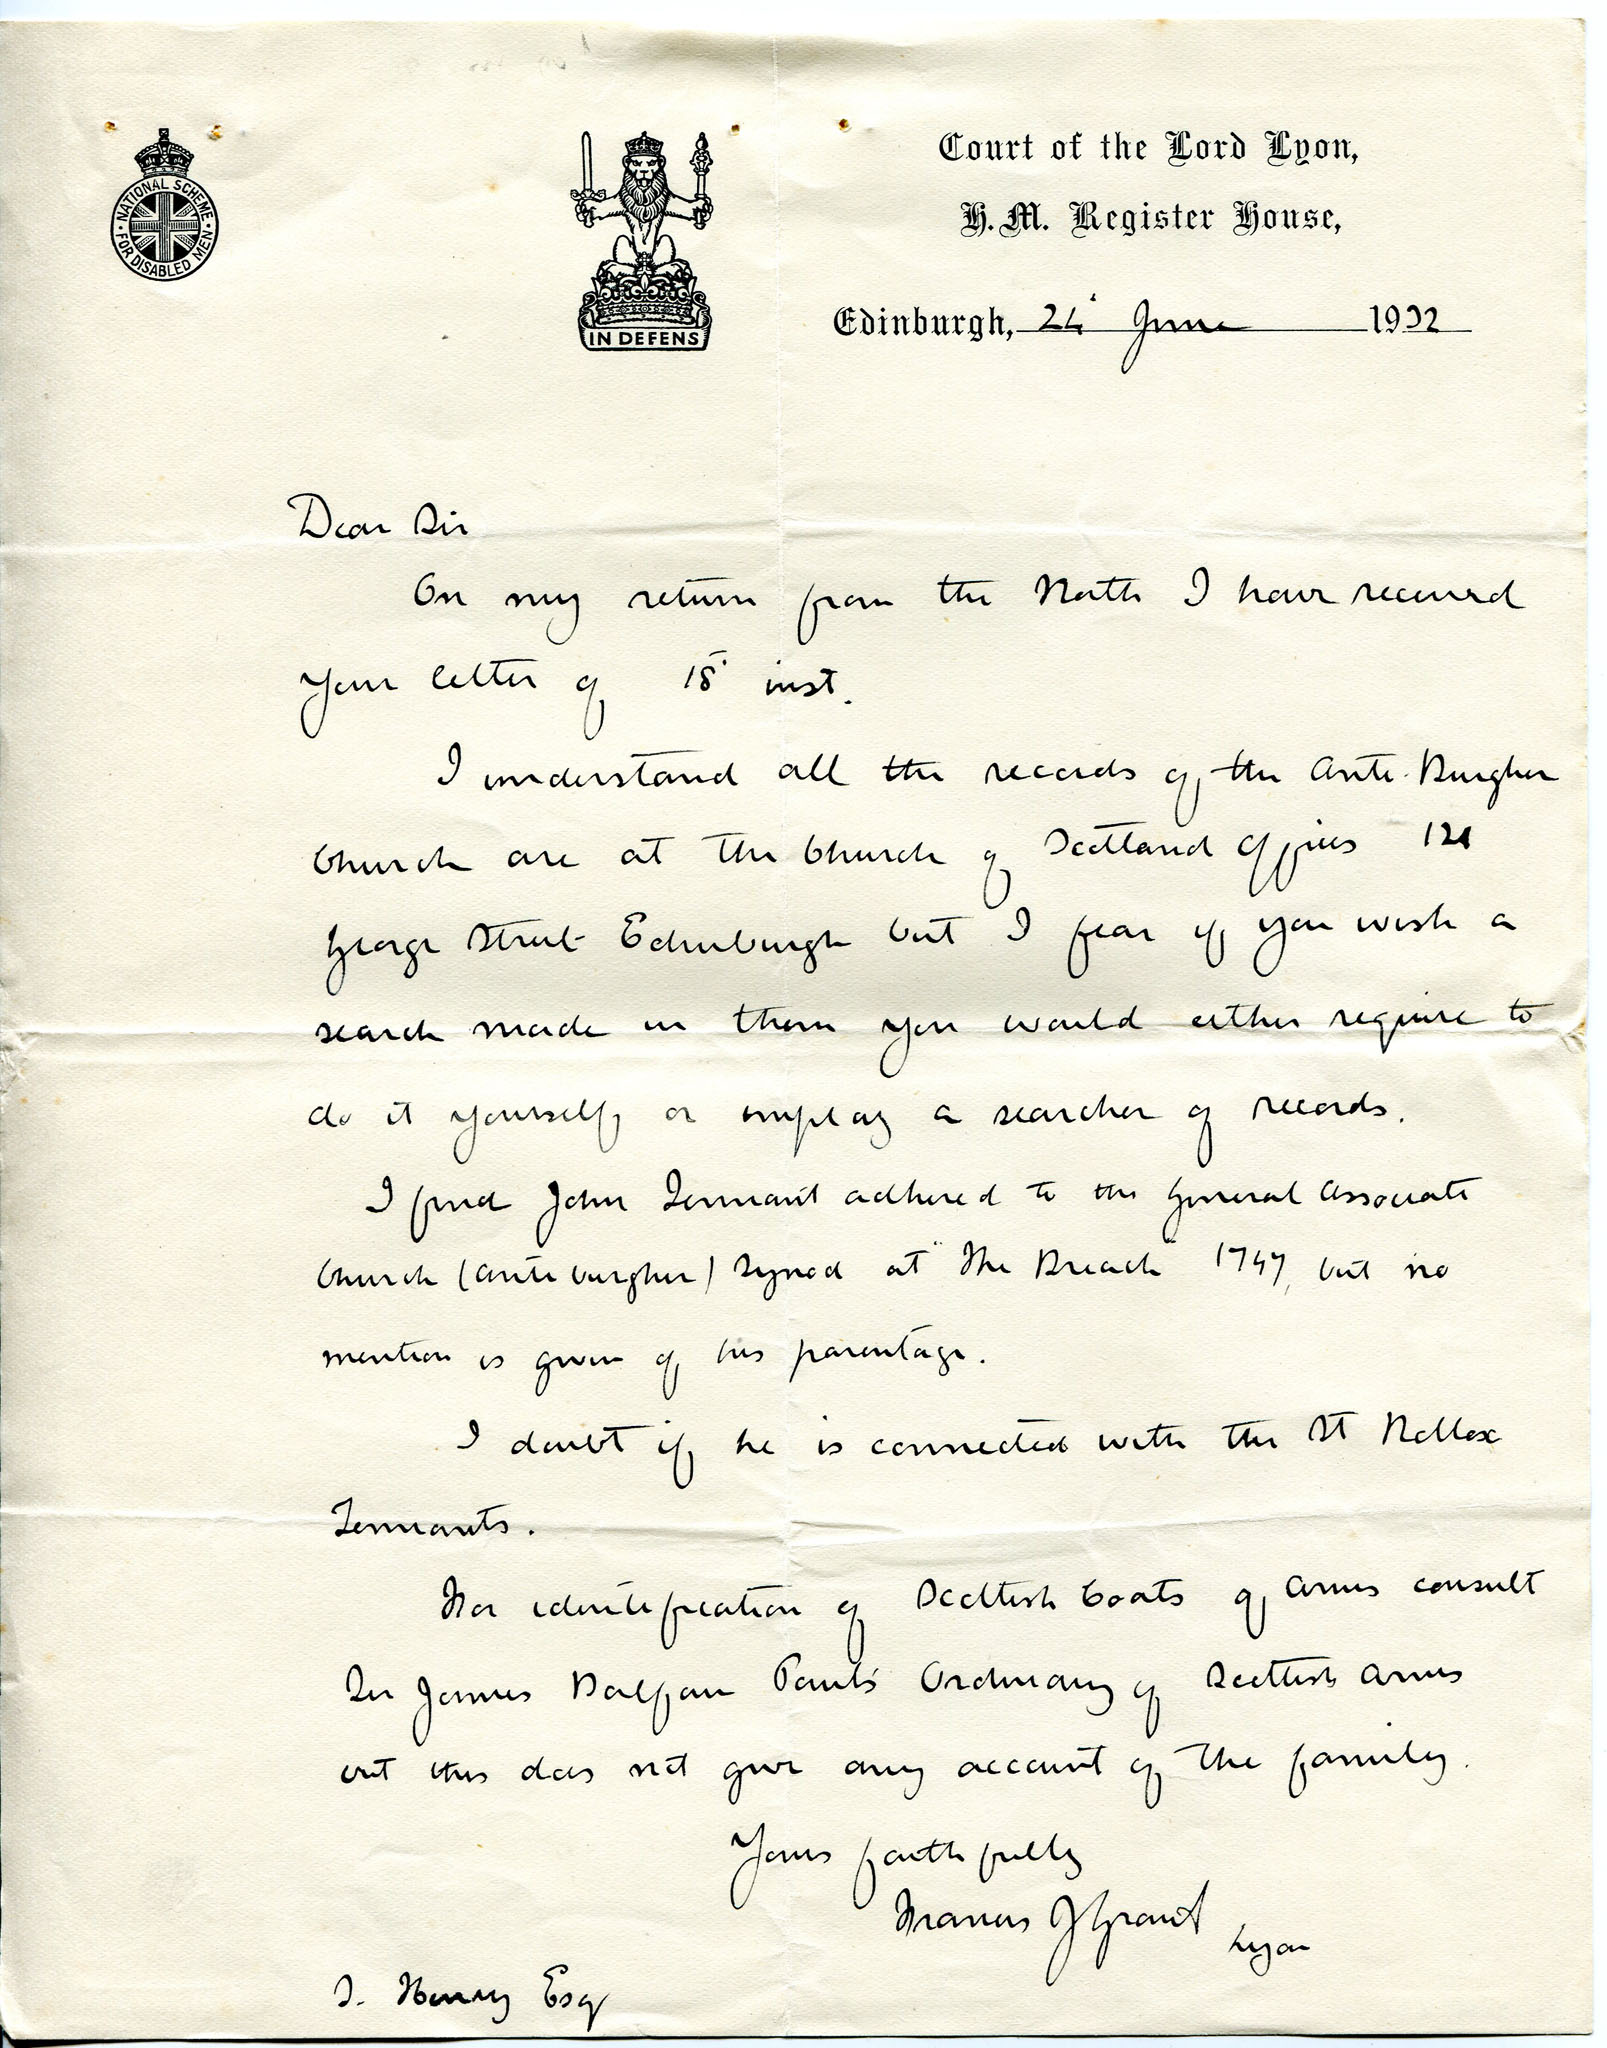 NATIONAL SCHEME
FOR DISABLED MEN
IN DEFENS
Court of the Lord Lyon,
H.M. Register House,
Edinburgh, 24 June 1932
Dear Sir
On my return from the North I have received
your letter of 15 inst.
I understand all the records of the Ante-Burgher
Church are at the Church of Scotland Offices 121
George Street Edinburgh but I fear if you wish a
search made in them you would either require to
do it yourself or employ a searcher of records.
I find John Tennant adhered to the General Associate
Church (Anteburgher) Synod at "The Breach" 1747, but no
mention is given of his parentage.
I doubt if he is connected with the St Rollox
Tennants.
For identification of Scottish Coats of Arms consult
Sir James Balfour Paul's Ordinary of Scottish Arms
but this does not give any account of the family.
Yours faithfully
Francis J Grant
Lyon
Henry Esq